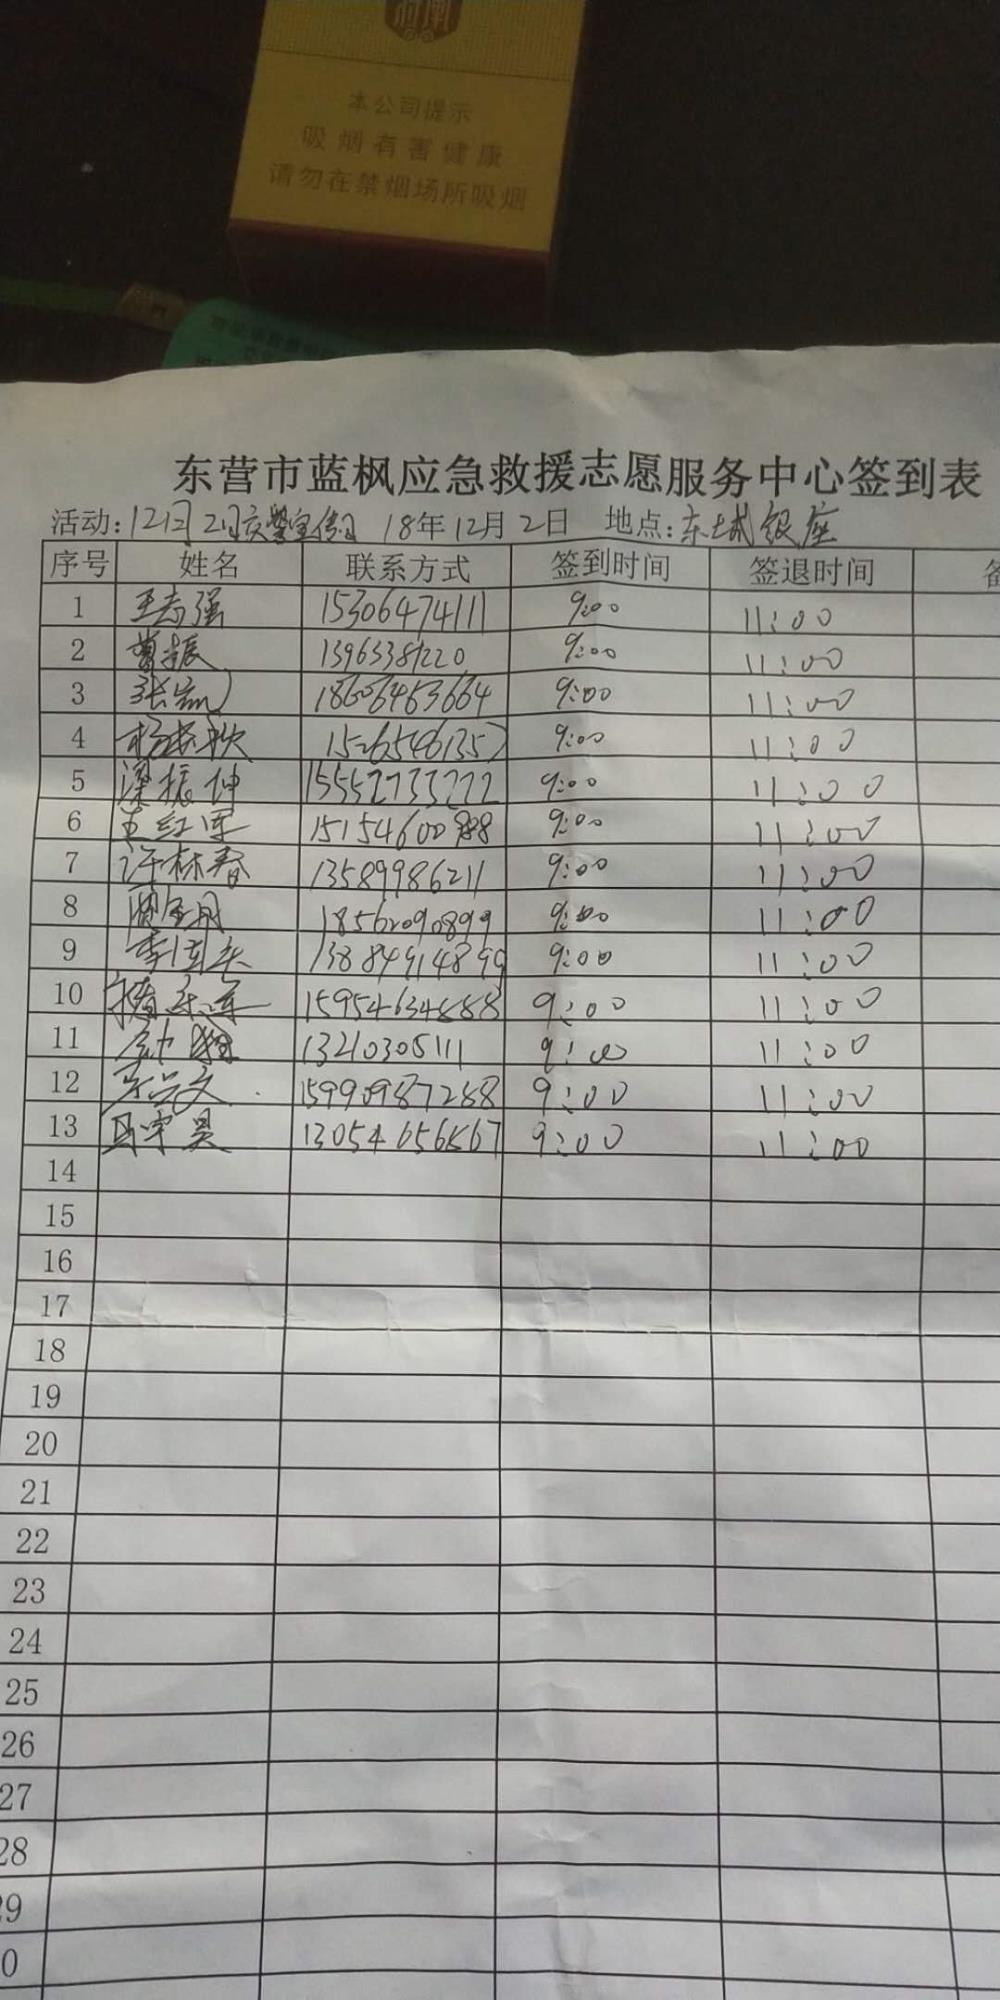 本公司提示
吸烟有害健康
请勿在禁烟场所吸烟
东营市蓝枫应急救援志愿服务中心签到表
活动:12月2日交警宣传日 18年12月2日 地点:东城银座
序号 姓名 联系方式 签到时间 签退时间
1 王志强 15306474111 9:00 11:00
2 9:00 11:00
3 18606463664 9:00 11:00
4 15265461357 9:00 11:00
5 梁振坤 15552733222 9:00 11:00
6 王红军 9:00 11:00
7 许林春 13589986211 9:00 11:00
8 18562090899 9:00 11:00
9 13884914899 9:00 11:00
10 15954634888 9:00 11:00
11 13210305111 9:00 11:00
12 15990987288 9:00 11:00
13 马宇昊 13054656567 9:00 11:00
14
15
16
17
18
19
20
21
22
23
24
25
26
27
28
29
0